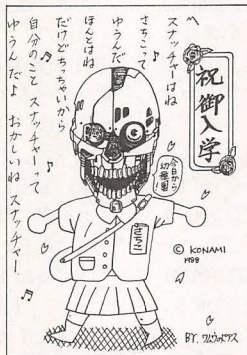 祝御入学
スナッチャーはね
さちこって
ゆうんだ
ほんとはね
だけどちっちゃいから
自分のこと スナッチャーって
ゆうんだよ おかしいね スナッチャー
今日から
幼稚園!
さちこ
© KONAMI
1988